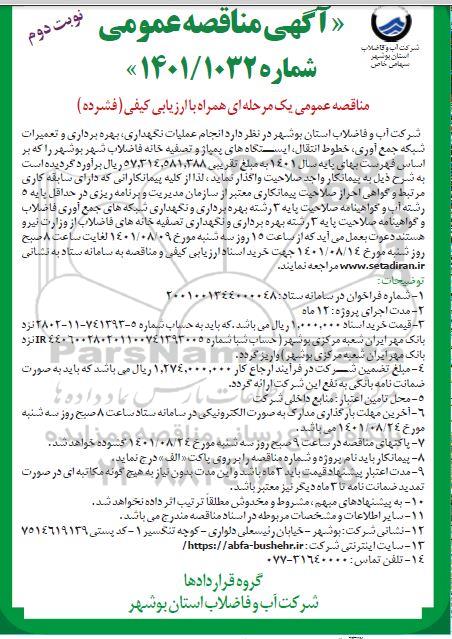 « آگهی مناقصه عمومی
شماره ۱۴۰۱/۱۰۳۲ »
نوبت دوم
شرکت آب و فاضلاب
استان بوشهر
سهامی خاص
مناقصه عمومی یک مرحله ای همراه با ارزیابی کیفی (فشرده)
شرکت آب و فاضلاب استان بوشهر در نظر دارد انجام عملیات نگهداری، بهره برداری و تعمیرات
شبکه جمع آوری، خطوط انتقال، ایستگاه های پمپاژ و تصفیه خانه فاضلاب شهر بوشهر را که بر
اساس فهرست بهای پایه سال ۱۴۰۱ به مبلغ تقریبی ۵۷,۳۱۴,۵۸۱,۳۸۸ ریال برآورد گردیده است
به شرح ذیل به پیمانکار واجد صلاحیت واگذار نماید ، لذا از کلیه پیمانکارانی که دارای سابقه کاری
مرتبط و گواهی احراز صلاحیت پیمانکاری معتبر از سازمان مدیریت و برنامه ریزی در حداقل پایه ۵
رشته آب و گواهینامه صلاحیت پایه ۳ رشته بهره برداری و نگهداری شبکه های جمع آوری فاضلاب
و گواهینامه صلاحیت پایه ۳ رشته بهره برداری و نگهداری تصفیه خانه های فاضلاب از وزارت نیرو
هستند دعوت بعمل می آید که از ساعت ۱۵ روز سه شنبه مورخ ۱۴۰۱/۰۸/۰۹ لغایت ساعت ۸ صبح
روز شنبه مورخ ۱۴۰۱/۰۸/۱۴ جهت خرید اسناد ارزیابی کیفی و مناقصه به سامانه ستاد به نشانی
www.setadiran.ir مراجعه نمایند.
توضیحات:
۱- شماره فراخوان در سامانه ستاد: ۲۰۰۱۰۰۱۳۴۴۰۰۰۰۴۸
۲- مدت اجرای پروژه: ۱۲ ماه
۳- قیمت خرید اسناد ۱,۰۰۰,۰۰۰ ریال می باشد. که باید به حساب شماره ۵-۷۴۱۳۹۳-۱۱-۲۸۰۲ نزد
بانک مهر ایران شعبه مرکزی بوشهر ( حساب شبا شماره IR ۴۴۰۶۰۰۲۸۰۲۰۱۱۰۰۷۴۱۳۹۳۰۰۵ نزد
بانک مهر ایران شعبه مرکزی بوشهر) واریز گردد.
۴- مبلغ تضمین شرکت در فرآیند ارجاع کار ۱,۲۷۴,۰۰۰,۰۰۰ ریال می باشد که باید به صورت
ضمانت نامه بانکی به نفع این شرکت ارائه گردد.
۵- محل تامین اعتبار: منابع داخلی شرکت
۶- آخرین مهلت بارگذاری مدارک به صورت الکترونیکی در سامانه ستاد ساعت ۸ صبح روز سه شنبه
مورخ ۱۴۰۱/۰۸/۲۴ می باشد.
۷- پاکتهای مناقصه در ساعت ۹ صبح روز سه شنبه مورخ ۱۴۰۱/۰۸/۲۴ گشوده خواهد شد.
۸- پیمانکار باید نام پروژه و شماره مناقصه را بر روی پاکت «الف» درج نماید.
۹- مدت اعتبار پیشنهاد قیمت باید ۳ ماه باشد و این مدت بدون نیاز به هیچ گونه مکاتبه ای در صورت
تمدید ضمانت نامه تا ۳ ماه دیگر نیز معتبر باشد.
۱۰- به پیشنهادهای مبهم ، مشروط و مخدوش مطلقا ترتیب اثر داده نخواهد شد.
۱۱- سایر اطلاعات و مشخصات مربوطه در اسناد مناقصه مندرج می باشد.
۱۲- نشانی شرکت: بوشهر - خیابان رئیسعلی دلواری - کوچه تنگسیر ۱ - کد پستی ۷۵۱۴۶۱۹۱۳۹
۱۳- سایت اینترنتی شرکت: https://abfa-bushehr.ir/
۱۴- تلفن تماس: ۳۱۶۴۰۰۰۰-۰۷۷
گروه قراردادها
شرکت آب و فاضلاب استان بوشهر